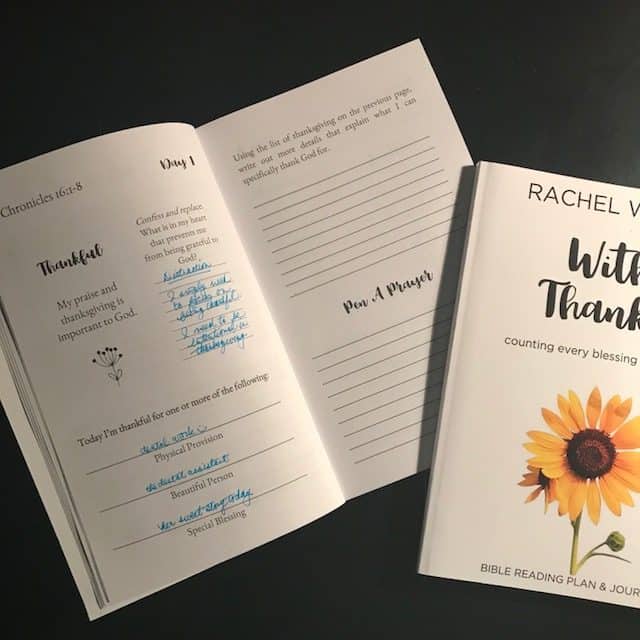 Day 1
Chronicles 16:1-8
Thankful
My praise and
thanksgiving is
important to God.
Confess and replace.
What is in my heart
that prevents me
from being grateful to
God?
Distraction
I simply need
to focus on
being thankful.
I need to be
intentional in
thanksgiving
Today I'm thankful for one or more of the following:
dental work
Physical Provision
the dental assistant
Beautiful Person
her sweet story today
Special Blessing
Using the list of thanksgiving on the previous page,
write out more details that explain what I can
specifically thank God for.
Pen A Prayer
RACHEL W
With
Thank
counting every blessing
BIBLE READING PLAN & JOUR